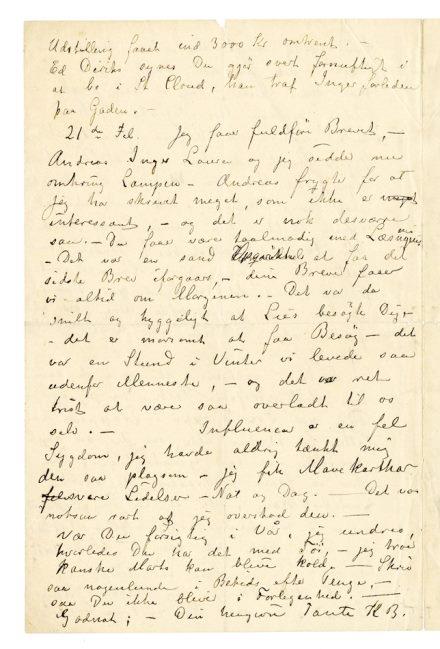 Udstilling faaet ind 3000 Kr omtrent. –
Ed Diriks synes Du gjør svært fornuftigt i
at bo i St Cloud, han traf Inger forleden
paa Gaden. –
21de Feb. Jeg faar fuldføre Brevet, –
Andreas Inger Laura og jeg sidde nu
omkring Lampen – Andreas frygter for at
jeg har skrevet meget, som ikke er meget
interessant, – og det er nok desværre
saa. – Du faar være taalmodig med Læsningen
– Det var en sand at faa dit
sidste Brev iforgaars, – dine Breve faaer
vi altid om Morgenen. – Det var da
snilt og hyggeligt at Lies besøgte Dig, –
– det er morsomt at faa Besøg – det
var en Stund i Vinter vi levede saa
udenfor Mennesker, – og det var ret
trist at være saa overladt til os
selv. – Influenca er en fæl
Sygdom, jeg havde aldrig tænkt mig
den saa plagsom – jeg fik Mavekathar
svære Lidelser – Nat og Dag. – Det var
notsaa vart at jeg overstod den. –
Vær Du forsigtig i Vår, jeg undres,
hvorledes Du har det med Tøi, – jeg troer
kanske Marts kan blive kold. – Skriv
saa nogenlunde i Beteds efter Penge, –
saa Du ikke bliver i Forlegenhed. –
Godnat; – Din hengivne Tante K B.